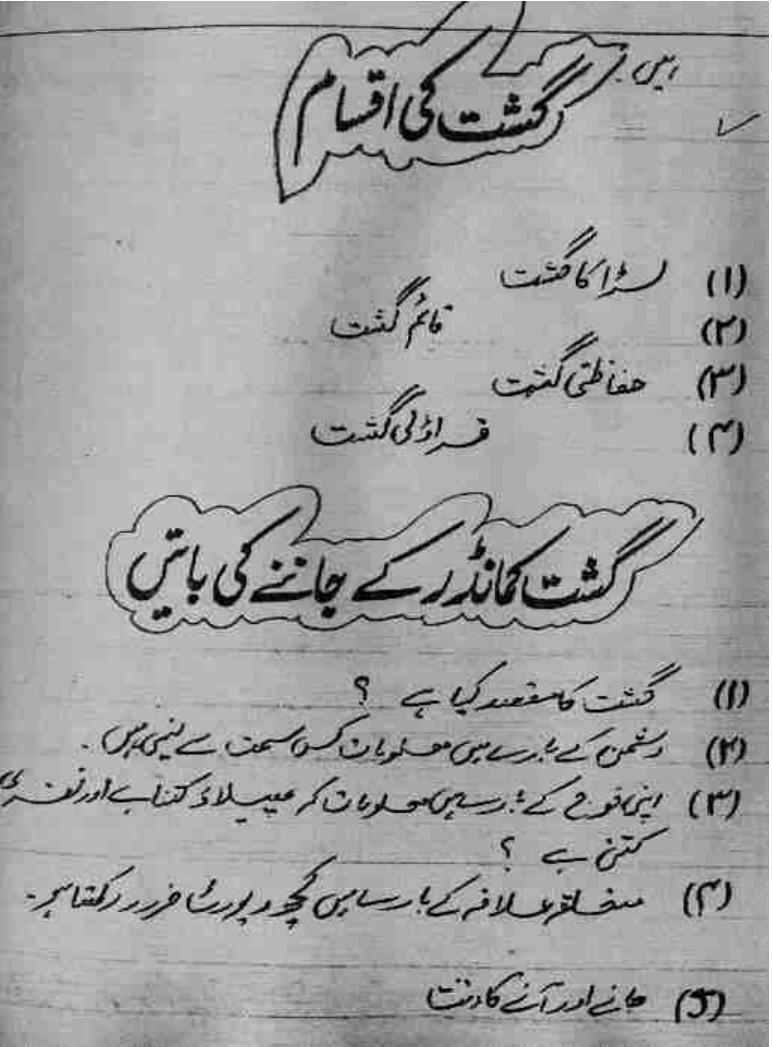 ہیں۔
گشت کی اقسام
(۱) لڑاکا گشت
(۲) قائم گشت
(۳) حفاظتی گشت
(۴) قراولی گشت
گشت کمانڈر کے جاننے کی باتیں
(۱) گشت کا مقصد کیا ہے ؟
(۲) دشمن کے بارے میں معلومات کس سمت سے لینی ہیں۔
(۳) اپنی فوج کے بارے میں معلومات کہ پھیلاؤ کتنا ہے اور نفری
کتنی ہے ؟
(۴) متعلقہ علاقہ کے بارے میں کچھ ضرور رکھتا ہو۔
(۵) جانے اور آنے کا وقت